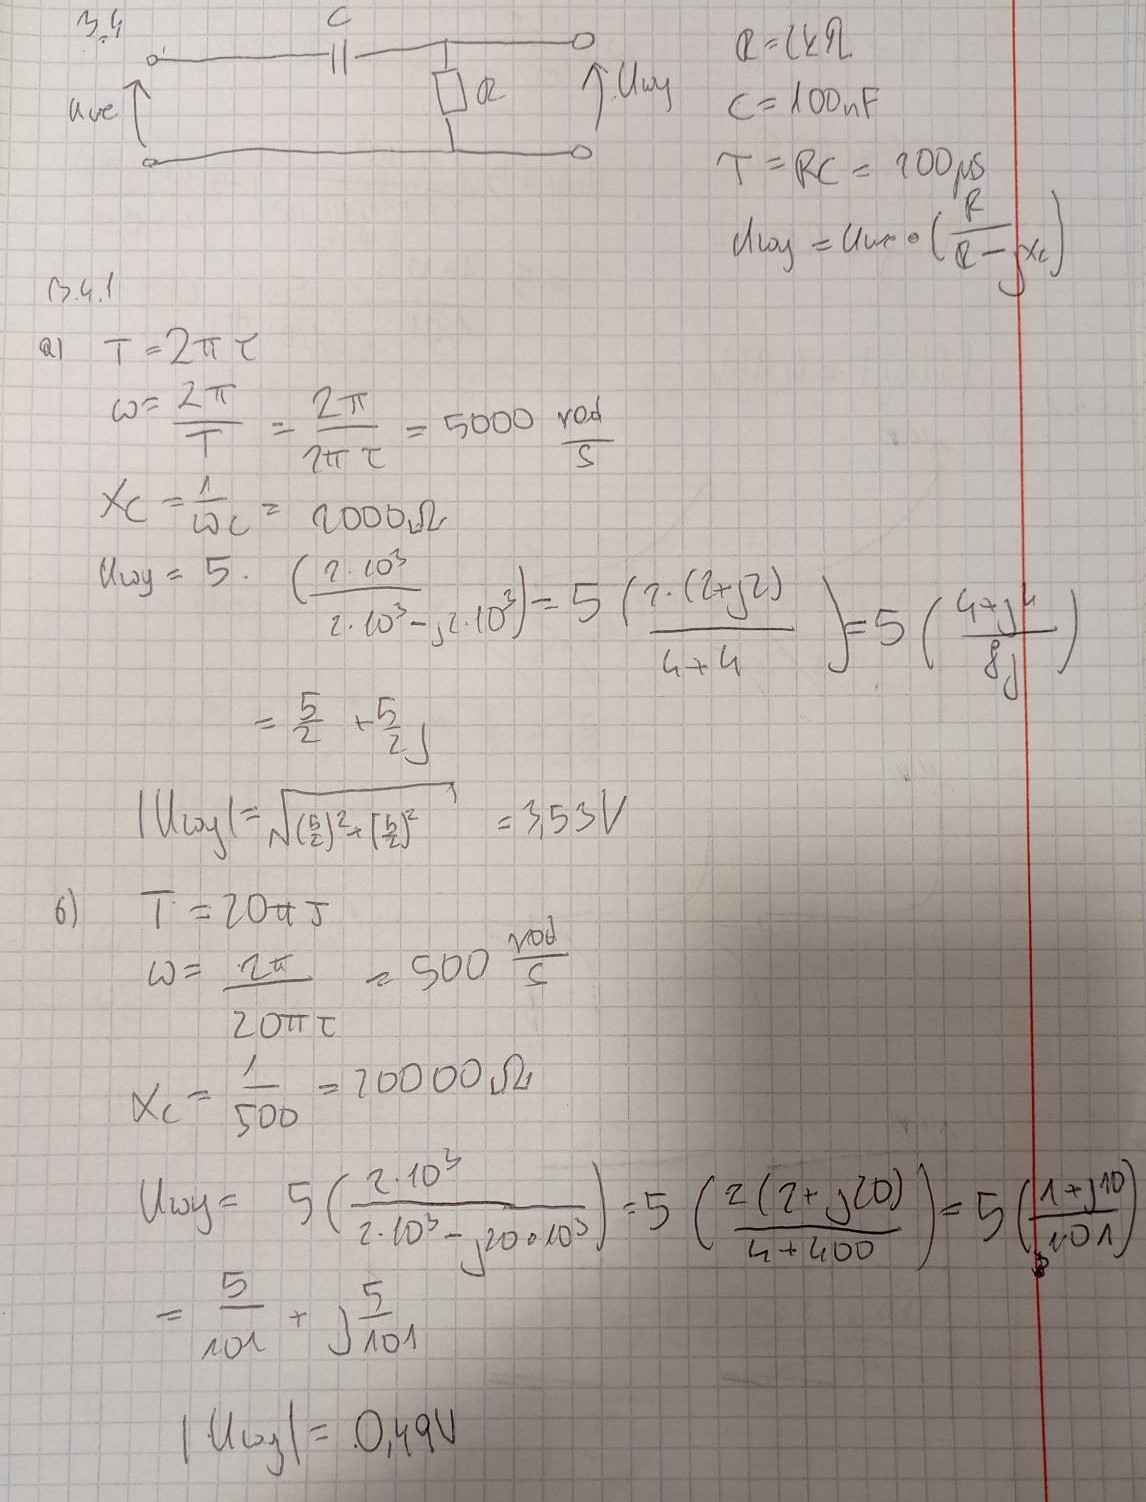 3.4
C
R
Uwe
Uwy
R=2kΩ
C=100nF
T=RC=200μs
Uwy = Uwe • (R/(R-jXc))
3.4.1
a) T=2πτ
ω=2π/T = 2π/(2πτ) = 5000 rad/s
Xc = 1/ωC = 2000Ω
Uwy = 5 · (2·10³/(2·10³-j2·10³)) = 5 (2·(2+j2)/(4+4)) = 5 ((4+j4)/8j)
= 5/2 + 5/2 j
|Uwy| = √((5/2)²+(5/2)²) = 3,53V
b) T=20πτ
ω= 2π/(20πτ) = 500 rad/s
Xc = 1/500 = 20000Ω
Uwy = 5 (2·10³/(2·10³-j20•10³)) = 5 (2(2+j20)/(4+400)) = 5 ((1+j10)/101)
= 5/101 + j 5/101
|Uwy| = 0,49V